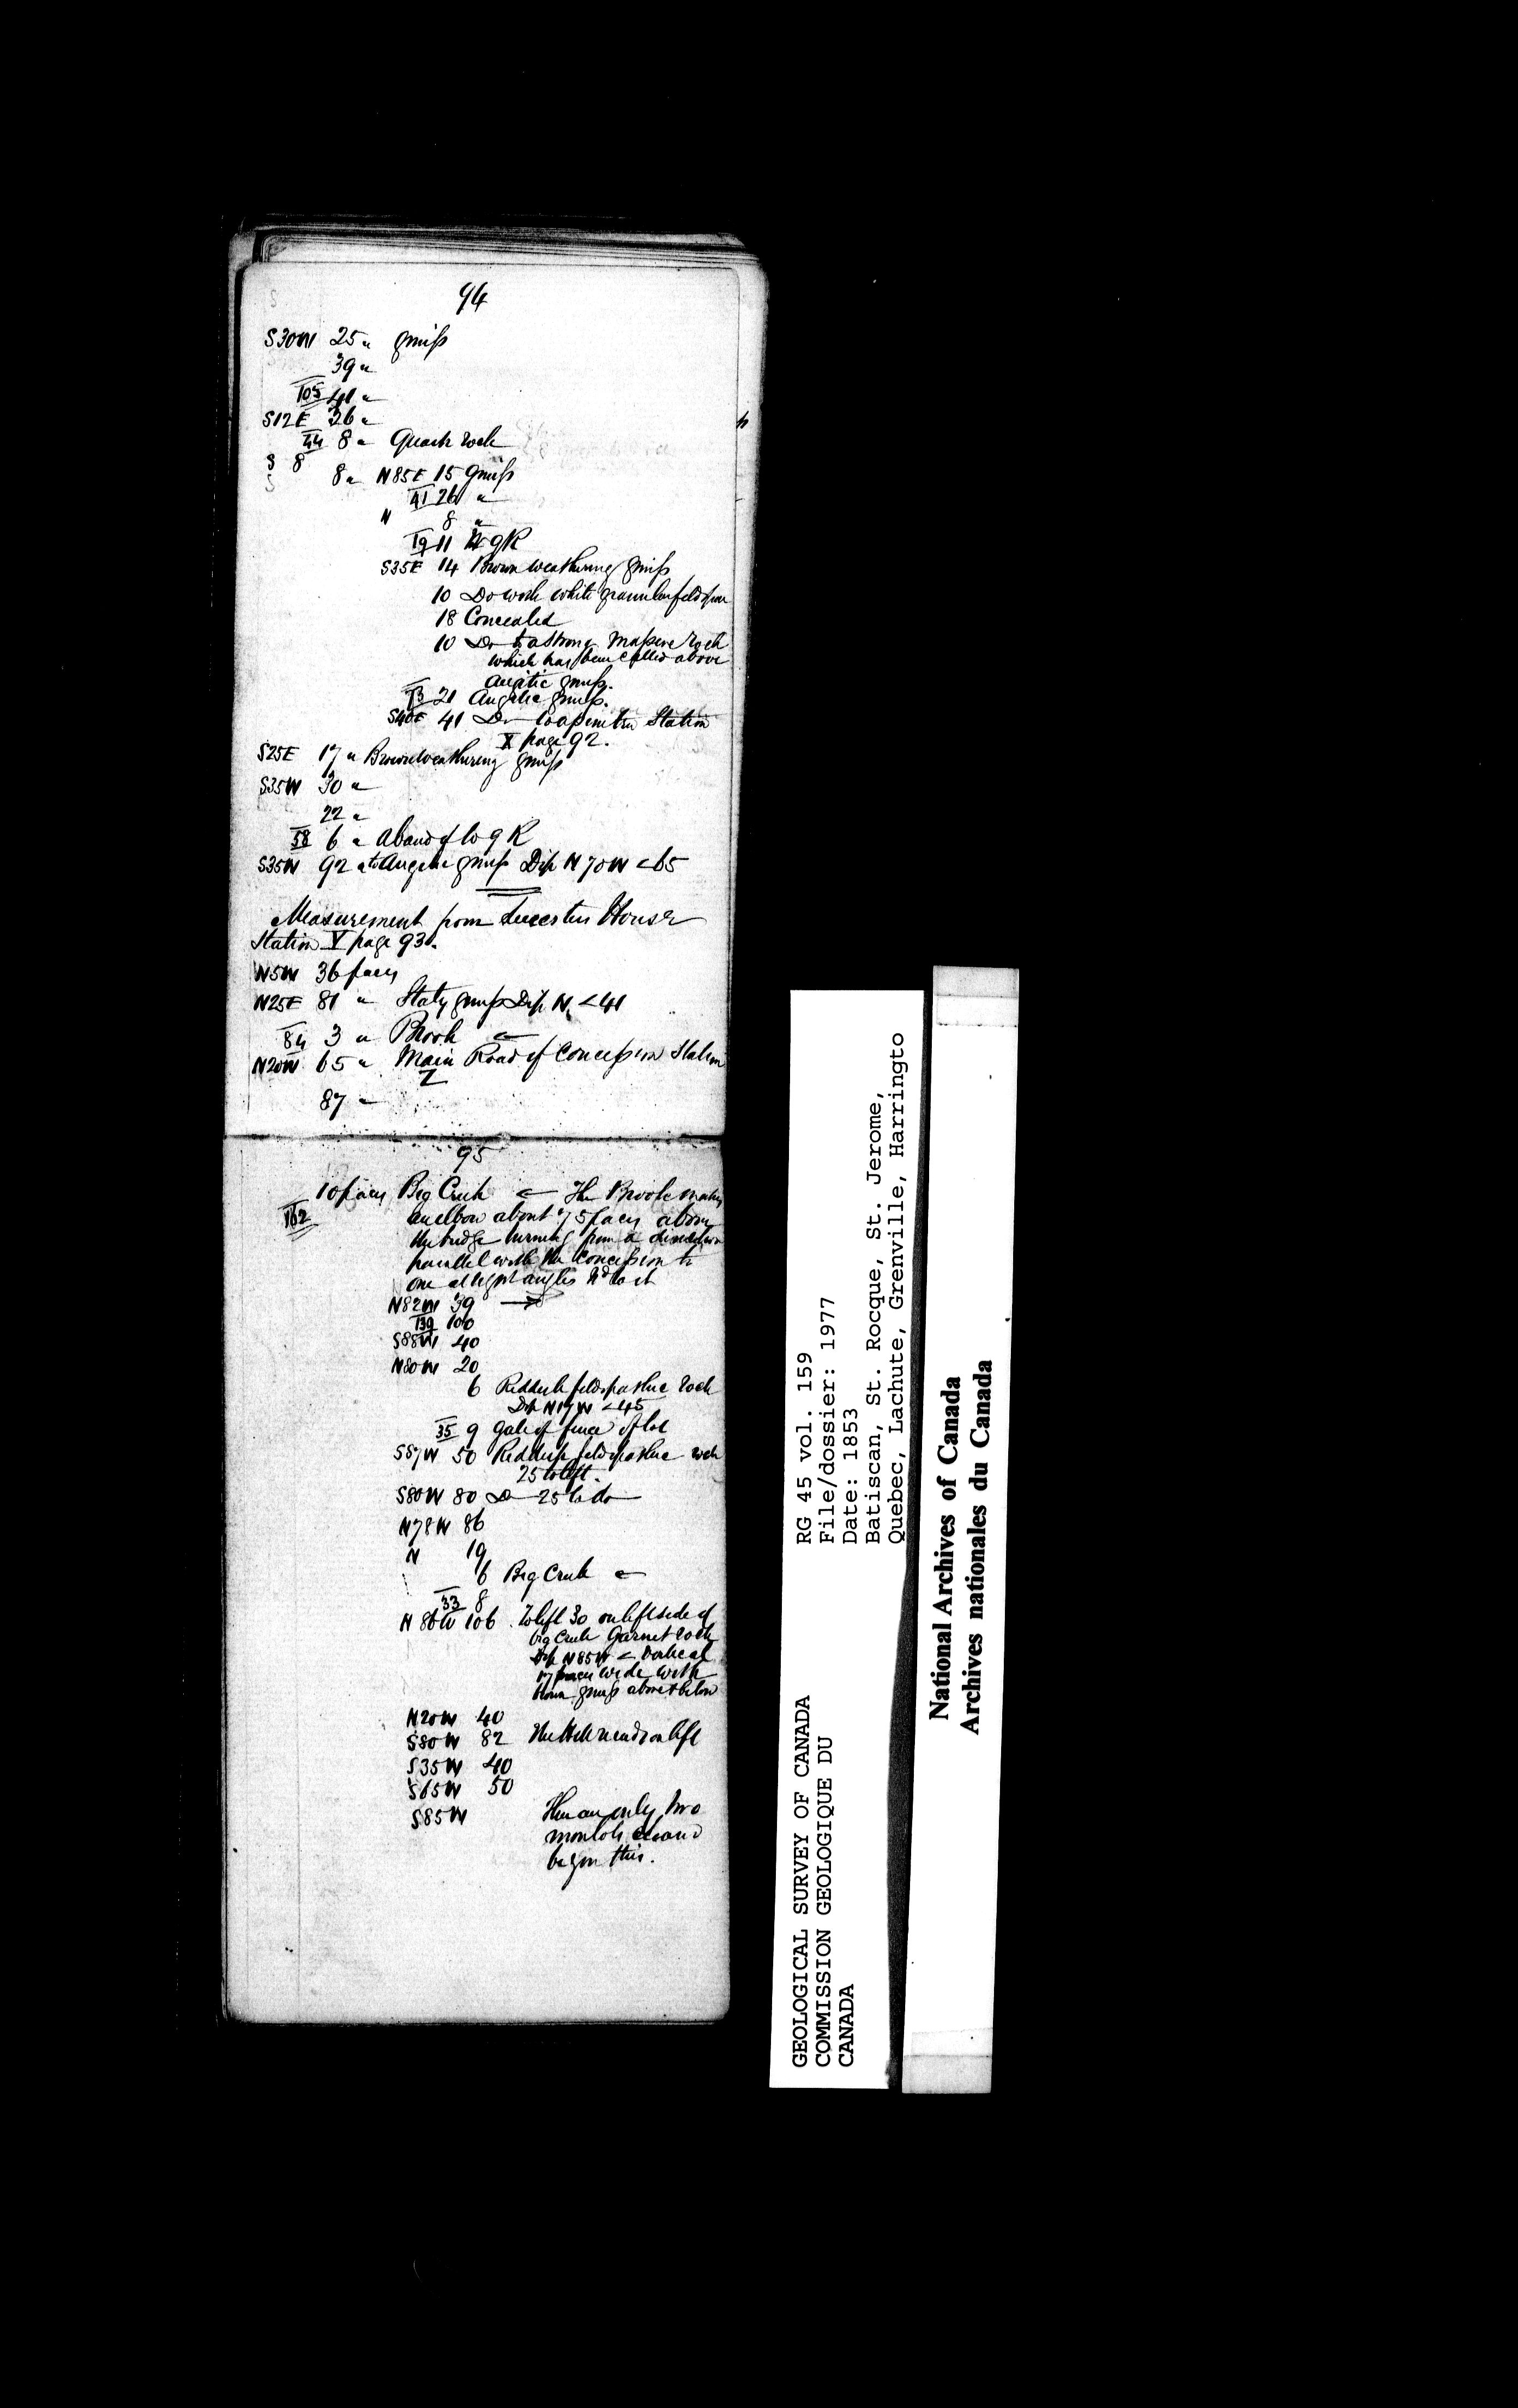 94
S30W 25 " gneiss
39 "
105 41 "
S12E 36 "
44 8 " Quartz rock
S 8
8 " N85E 15 gneiss
41 26 "
N 8 "
19 11 gR
S35E 14 Brown weathering gneiss
10 Do with white granular feldspar
18 Concealed
10 Do to a strong massive rock
which has been called above
Augitic gneiss.
73 21 Augitic gneiss.
S40E 41 Do to a point in Station
X page 92.
S25E 17 " Brown weathering gneiss
S35W 30 "
22 "
58 6 " A band of to g R
S35W 92 " to Augitic gneiss Dip N70W <65
Measurement from House
Station V page 93.
N5W 36 paces
N25E 81 " Slaty gneiss Dip N. <41
84 3 " Brook
N20W 65 " Main Road of Concession Station
Z
87 "
95
10 paces Big Creek The Brook makes
162 an elbow about 75 paces above
the bridge turning from a direction
parallel with the Concession to
one at right angles to it
N82W 39
139 100
S88W 40
N80W 20
6 Reddish feldspathic rock
Dip N17W <45
35 9 Gate of fence of lot
S87W 50 Reddish feldspathic rock
25 to left.
S80W 80 Do 25 to do
N78W 86
N 19
6 Big Creek
33 8
N86W 106 To left 30 on left side of
big Creek Garnet rock
Dip N85W < vertical
17 paces wide with
gneiss above & below
N20W 40
S80W 82 on left
S35W 40
S65W 50
S85W only two
begin this.
GEOLOGICAL SURVEY OF CANADA
COMMISSION GEOLOGIQUE DU
CANADA
RG 45 vol. 159
File/dossier: 1977
Date: 1853
Batiscan, St. Rocque, St. Jerome,
Quebec, Lachute, Grenville, Harringto
National Archives of Canada
Archives nationales du Canada